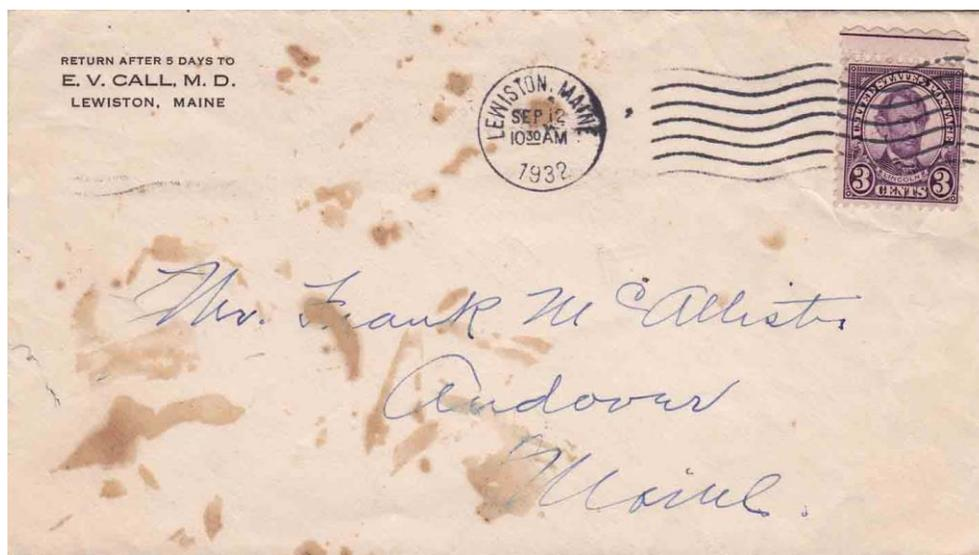 RETURN AFTER 5 DAYS TO
E. V. CALL, M. D.
LEWISTON, MAINE
LEWISTON, MAINE
SEP 12
10 30 AM
1932
UNITED STATES POSTAGE
LINCOLN
3 CENTS 3
Mr. Frank McAllister
Andover
Maine.